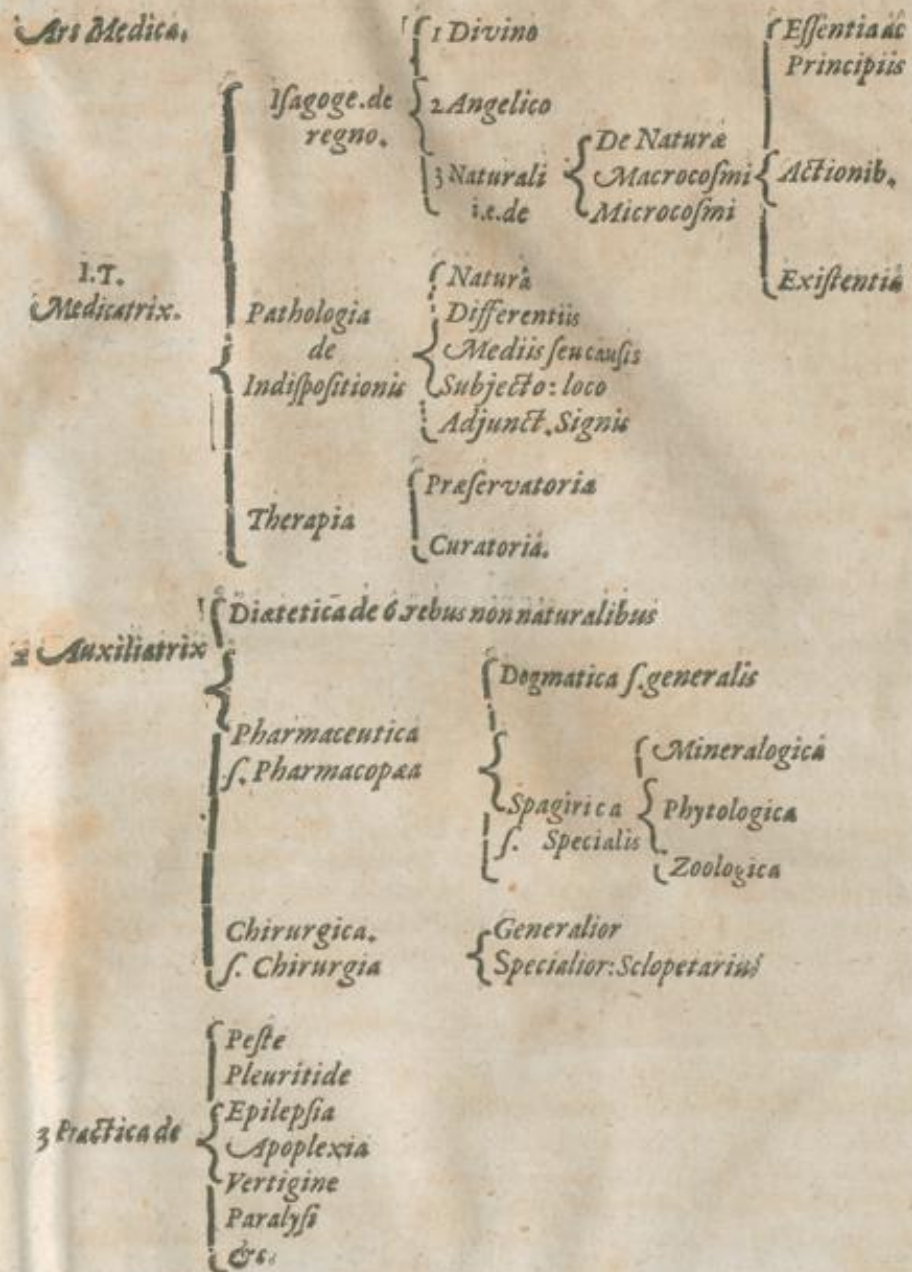 Ars Medica.
I.T.
Medicatrix.
Isagoge.de
regno.
1 Divino
2 Angelico
3 Naturali
i.e.de
De Naturæ
Macrocosmi
Microcosmi
Essentia ac
Principiis
Actionib.
Existentiâ
Pathologia
de
Indispositionis
Naturâ
Differentiis
Mediis seu causis
Subjecto: loco
Adjunct. Signis
Therapia
Præservatoria
Curatoriâ.
2 Auxiliatrix
Diætetica de 6. rebus non naturalibus
Pharmaceutica
s. Pharmacopæa
Dogmatica s. generalis
Spagirica
s. Specialis
Mineralogicâ
Phytologica
Zoologica
Chirurgica.
s. Chirurgia
Generalior
Specialior: Sclopetarius
3 Practica de
Peste
Pleuritide
Epilepsia
Apoplexia
Vertigine
Paralysi
&c.